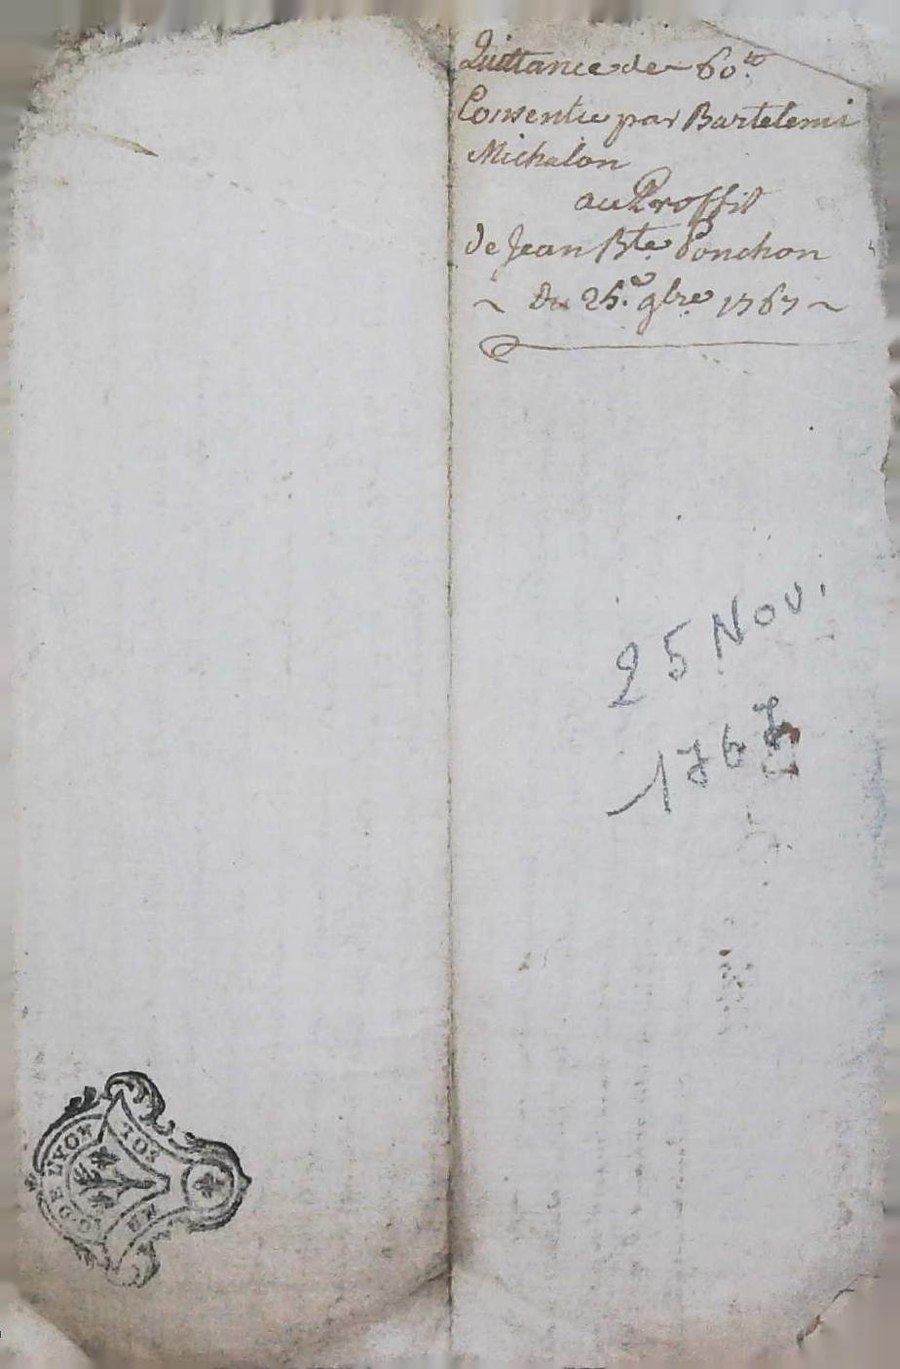 Quittance de 60ᵗᵗ
Consentie par Bartelemi
Michalon
au Proffit
de Jean Bte Ponchon
~ Du 25.e 9bre 1767 ~
25 Nov.
1767
G. DE LYON